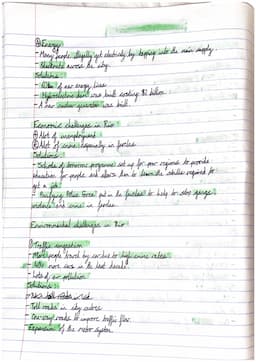 ④ Energy
- Many people illegally get electricity by tapping into the main supply.
- Blackouts across the city.
Solutions:
- 60km of new energy lines
- Hydroelectric dam was built costing $2 billion
- A new nuclear generator was built.
Economic challenges in Rio:
① Alot of unemployment
② Alot of crime especially in favelas
Solutions:
- Schools of tomorrow programme set up for poor regions to provide
education for people and allows them to learn the skills required to
get a job.
- Pacifying Police Force put in the favelas to help to stop
violence and crime in favelas.
Environmental challenges in Rio:
① Traffic congestion
- Most people travel by car due to high crime rates.
- 40% more cars in the last decade.
- Lots of air pollution
Solutions:
Toll roads in city centre
- One-way roads to improve traffic flow.
- Expansion of the metro system